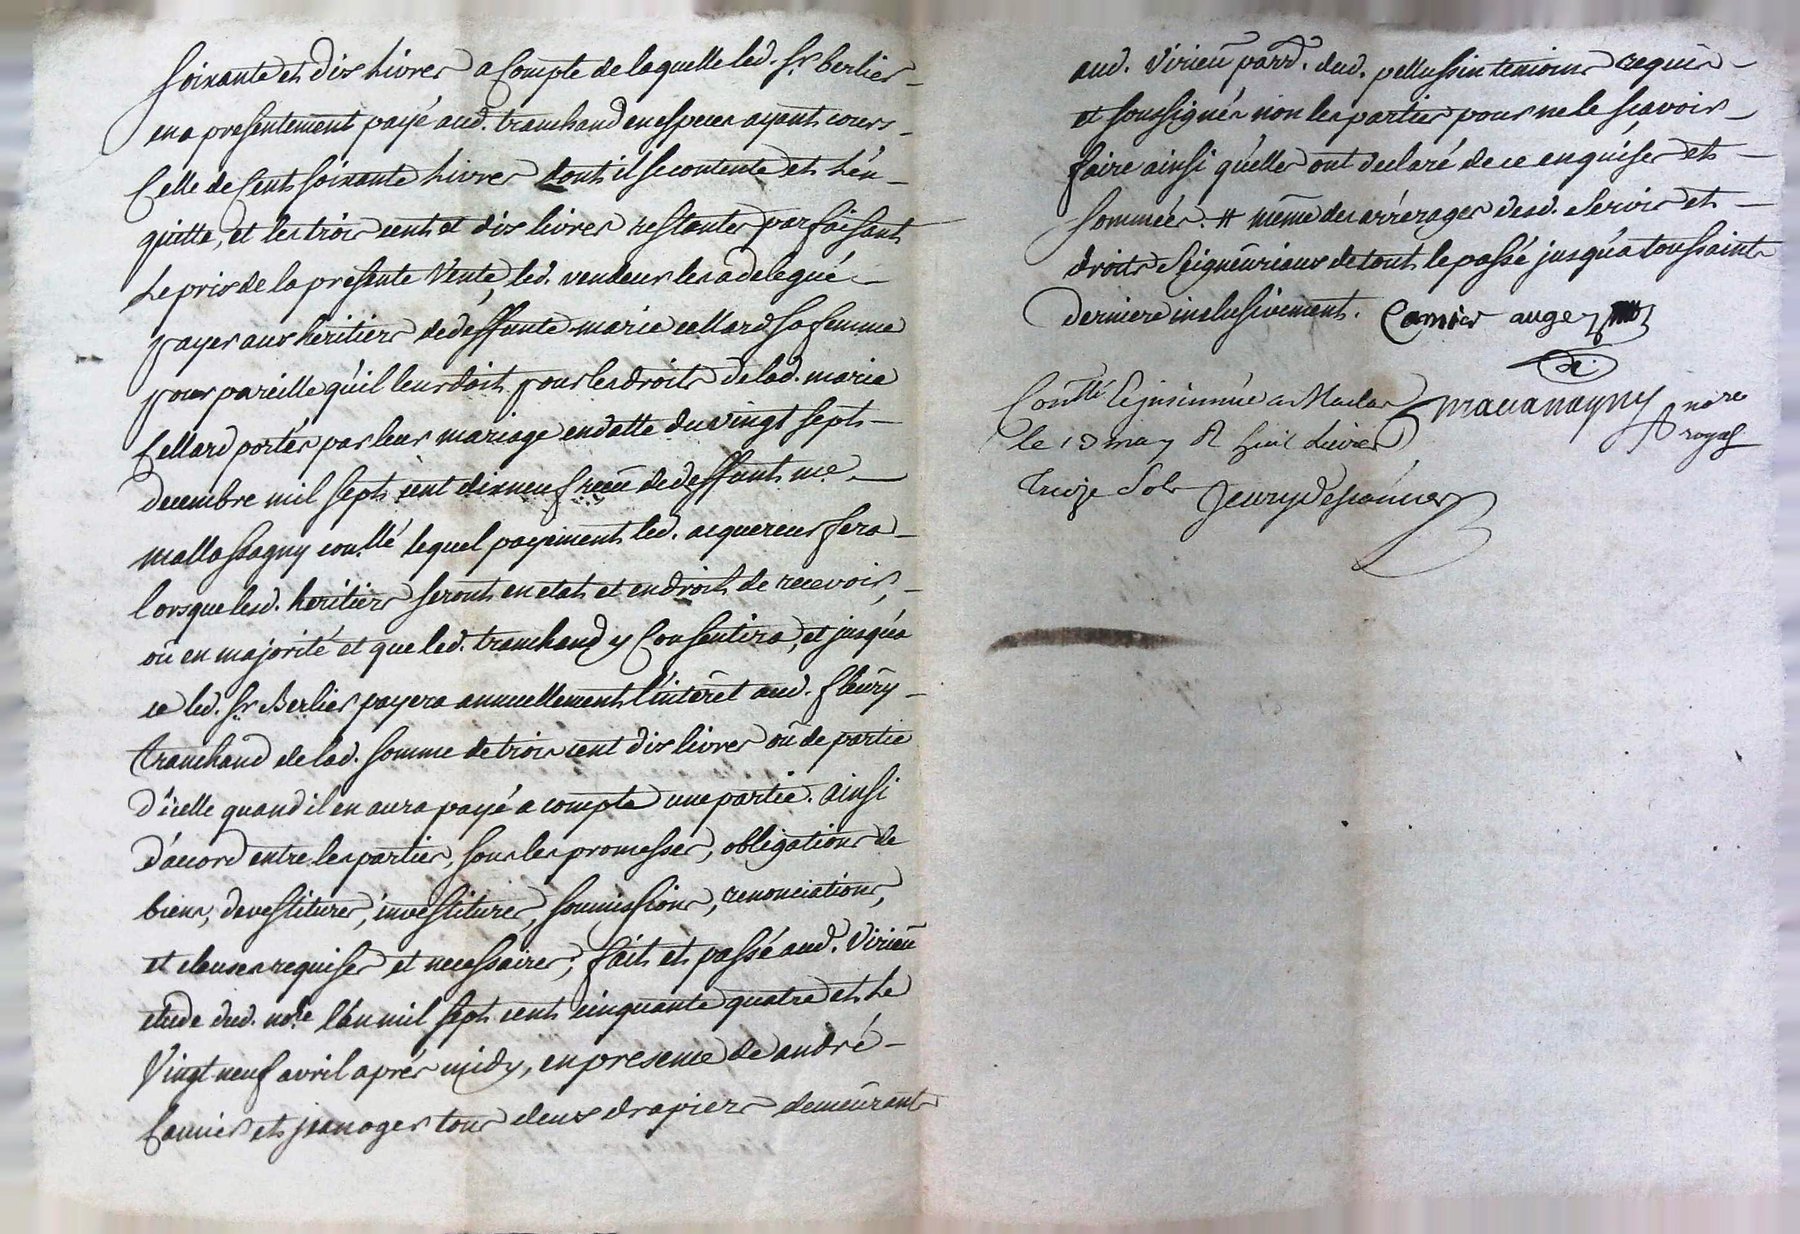 soixante et dix livres a Compte de laquelle led. Sr. berlier
en a presentement payé aud. tranchand en especes ayants cours
Celle de Cent soixante livres dont il se contente et l'en
quitte, et les trois cent et dix livres restantes parfaisant
Le prix de la presente Vente, led. vendeur les a delegué
payer aux héritiers de deffunte marie cellard sa femme
pour pareille qu'il leur doit pour les droits de lad. marie
Cellard portés par leur mariage en datte du vingt sept
decembre mil sept cent dix neuf reçu de deffunt me.
mallassagny conllé lequel payement led. acquereur fera
lorsque lesd. héritiers seront en etat et en droit de recevoir,
ou en majorité et que led. tranchand y Consentira, et jusqu'a
ce led. Sr. Berlier payera annuellement l'intérêt aud. fleury
tranchand de lad. somme de trois cent dix livres ou de partie
d'icelle quand il en aura payé a compte une partie. ainsi
d'accord entre les parties, sous les promesses, obligations de
biens, devestitures, investitures, soumissions, renonciations,
et clauses requises et necessaires, fait et passé aud. Virieu
etude dud. nore. l'an mil sept cent cinquante quatre et le
Vingt neuf avril aprés midy, en presence de andré
Camier et jean oger tous deux drapiers demeurants
aud. Virieu parr. dud. pellussin temoins requis
et soussignés non les parties pour ne le scavoir
faire ainsi qu'elles ont declaré de ce enquises et
sommées. # même des arrérages desd. servis et
droits Seigneuriaux de tout le passé jusqu'a toussaint
derniere inclusivement. Camier auger
Conllé & insinué a Maclas
le 13 may R huit Livres
Treize Sols
nore royal